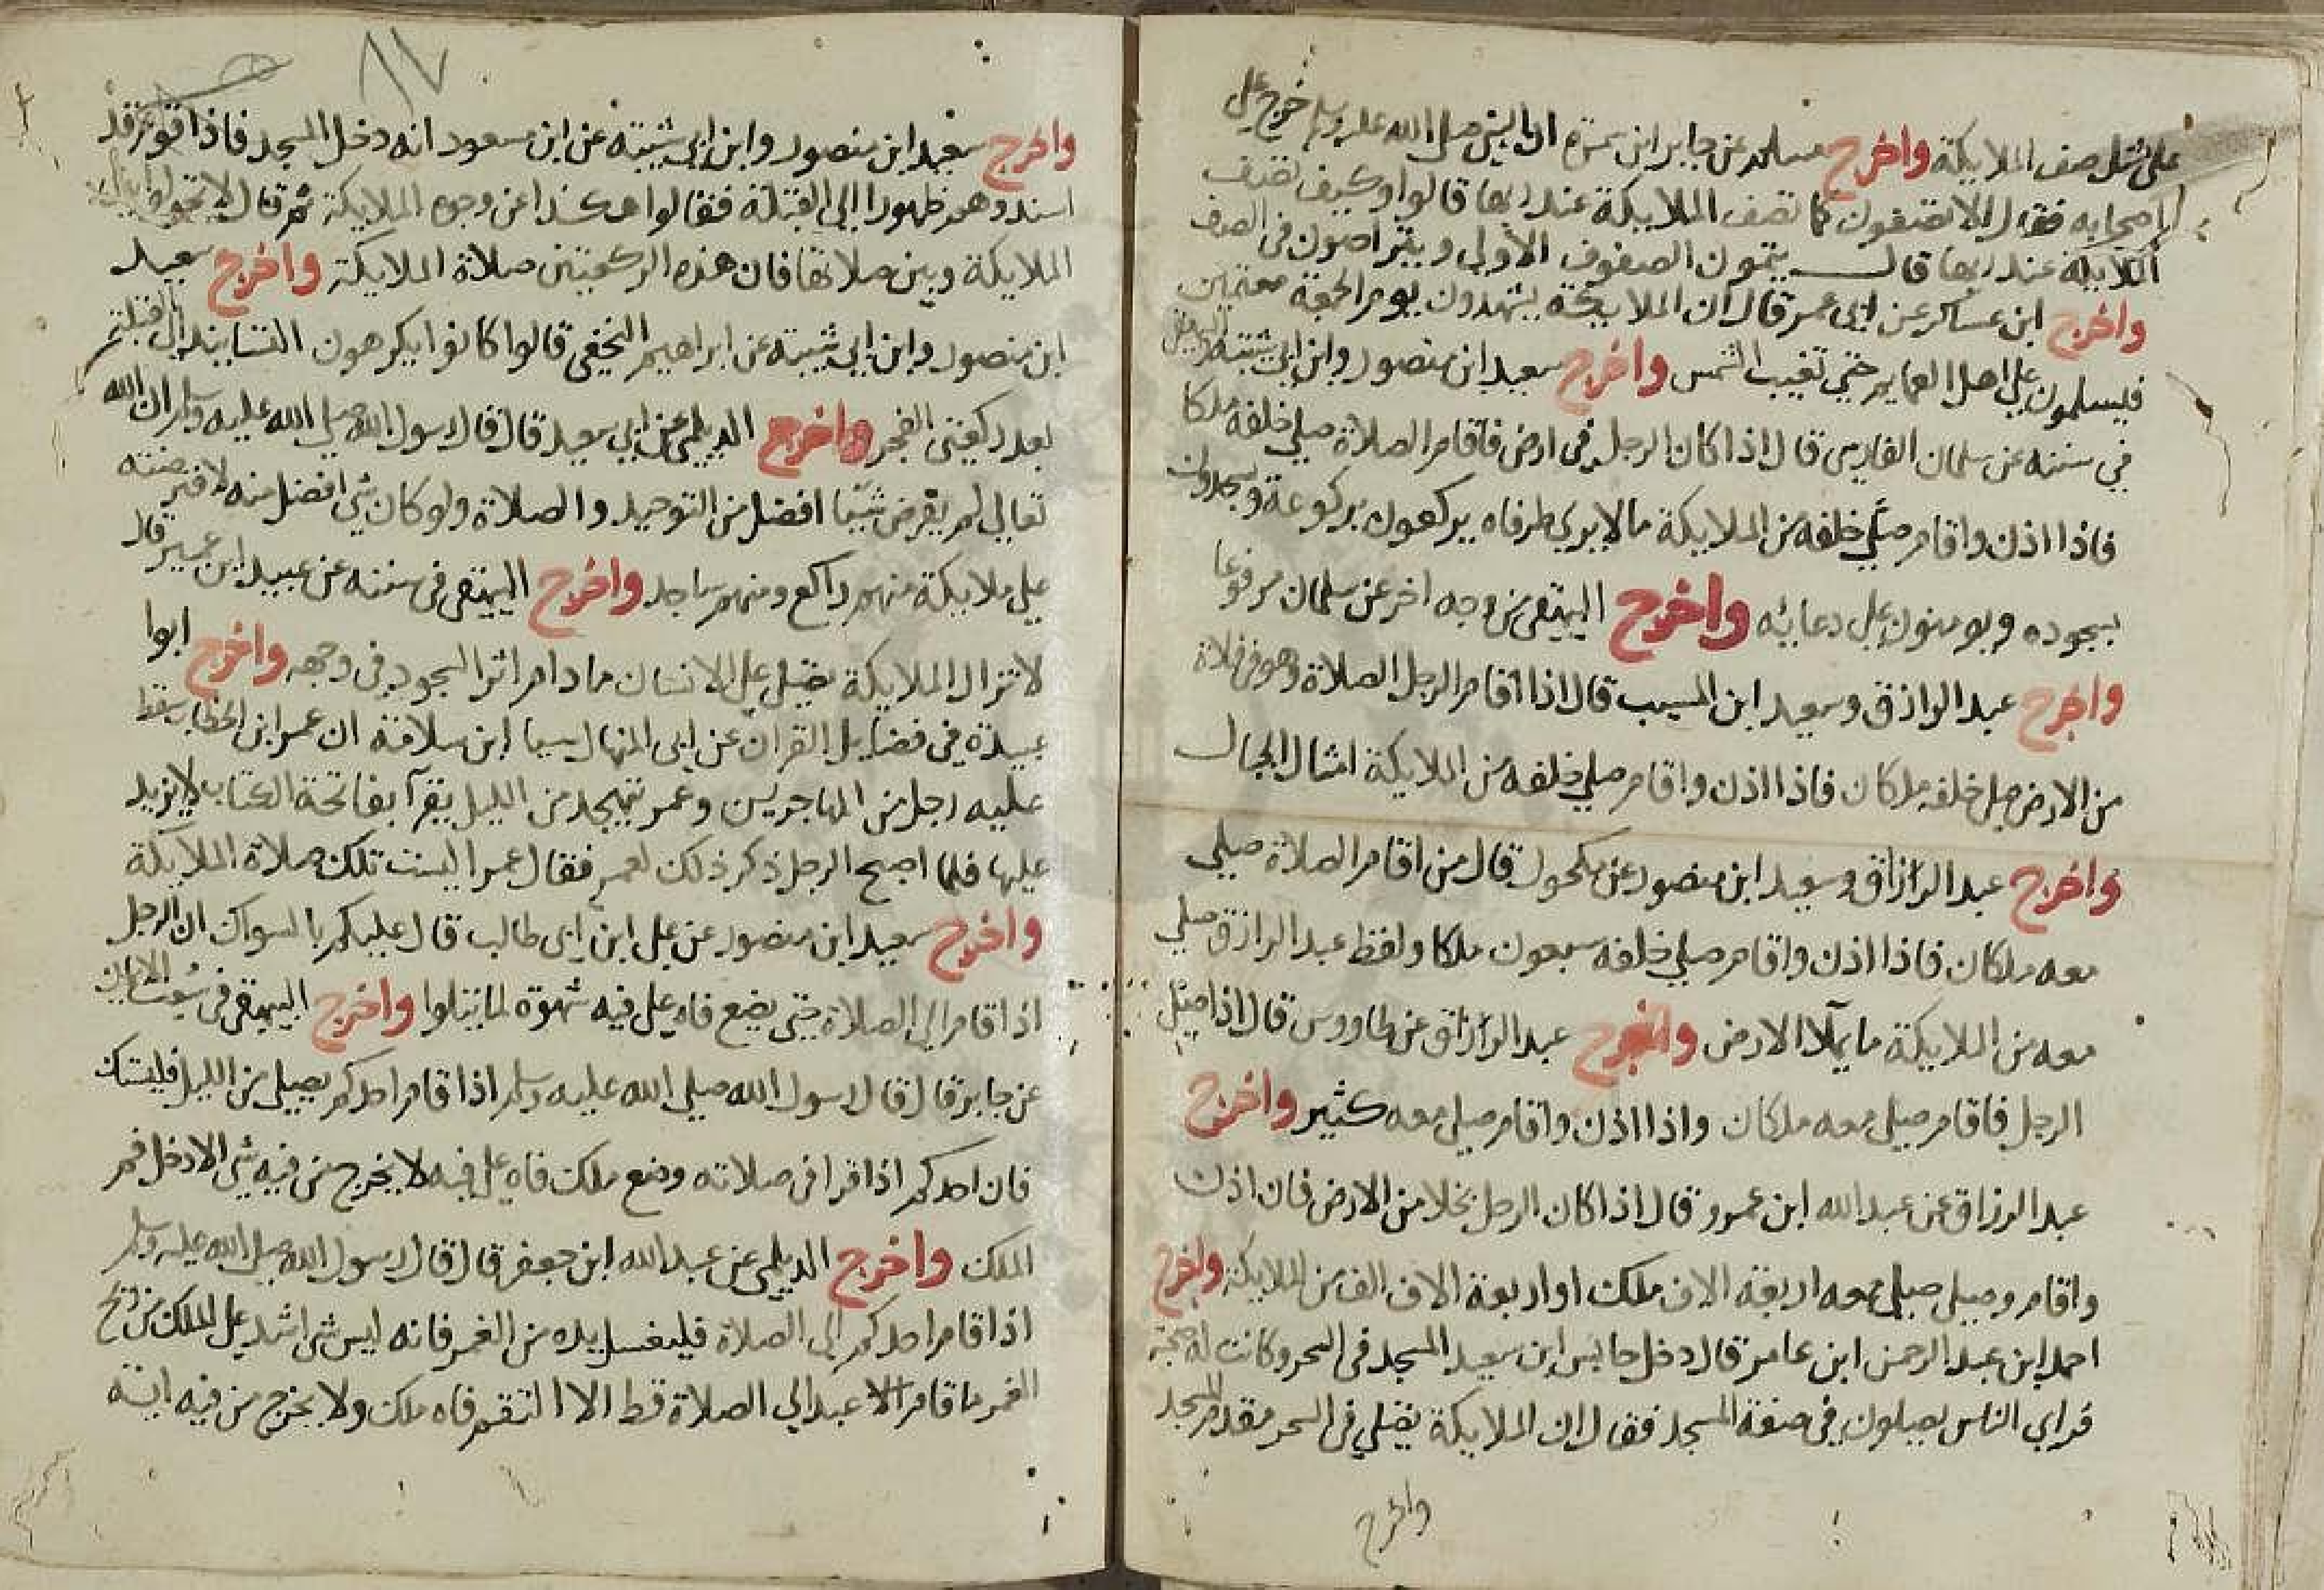 على مثل صف الملايكة واخرج مسلم عن جابر ابن سمرة ان النبي صلى الله عليه وسلم خرج على
اصحابه فقال الا تصفون كما تصف الملايكة عند ربها قالوا وكيف تصف
الملايكة عند ربها قال يتمون الصفوف الاولى ويتراصون في الصف
واخرج ابن عساكر عن ابي عمر قال ان الملايكة يشهدون يوم الجمعة معتمين
فيسلمون على اهل العمايم حتى تغيب الشمس واخرج سعيد ابن منصور وابن ابي شيبة والبيهقي
في سننه عن سلمان الفارسي قال اذا كان الرجل في ارض فاقام الصلاة صلى خلفه ملكا
فاذا اذن واقام صلى خلفه من الملايكة مالا يرى طرفاه يركعون بركوعه ويسجدون
بسجوده ويومنون على دعائه واخرج البيهقي من وجه اخر عن سلمان مرفوعا
واخرج عبد الرازق وسعيد ابن المسيب قال اذا اقام الرجل الصلاة وهو في فلاة
من الارض صلى خلفه ملكان فاذا اذن واقام صلى خلفه من الملايكة امثال الجبال
واخرج عبد الرازاق وسعيد ابن منصور عن مكحول قال من اقام الصلاة صلى
معه ملكان فاذا اذن واقام صلى خلفه سبعون ملكا ولفظ عبد الرازق صلى
معه من الملايكة ما يملا الارض واخرج عبد الرازاق عن طاووس قال اذا صلى
الرجل فاقام صلى معه ملكان واذا اذن واقام صلى معه كثير واخرج
عبد الرزاق عن عبد الله ابن عمرو قال اذا كان الرجل بخلا من الارض فان اذن
واقام وصلى صلى معه اربعة الاف ملك او اربعة الاف الف من الملايكة واخرج
احمد ابن عبد الرحمن ابن عامر قال دخل حابس ابن سعيد المسجد في السحر وكانت له صحبة
فراي الناس يصلون في صفة المسجد فقال ان الملايكة تصلي في السحر مقدم المسجد
واخرج
٨٧
واخرج سعيد ابن منصور وابن ابي شيبة عن ابن مسعود انه دخل المسجد فاذا قوم قد
اسندوا ظهورهم الى القبلة فقالوا هكذا عن وجوه الملايكة ثم قال لا تحولوا بين
الملايكة وبين صلاتها فان هذه الركعتين صلاة الملايكة واخرج سعيد
ابن منصور وابن ابي شيبة عن ابراهيم النخعي قالوا كانوا يكرهون التساند الى القبلة
بعد ركعتي الفجر واخرج الديلمي عن ابي سعيد قال قال رسول الله صلى الله عليه وسلم ان الله
تعالى لم يفرض شيئا افضل من التوحيد والصلاة ولو كان شي افضل منه لافترضته
على ملايكة منهم راكع ومنهم ساجد واخرج البيهقي في سننه عن عبيد ابن عمير قال
لا تزال الملايكة تصلي على الانسان ما دام اثر السجود في وجهه واخرج ابوا
عبيدة في فضايل القران عن ابي المنهال سيما ابن سلامة ان عمر ابن الخطاب سقط
عليه رجل من المهاجرين وعمر يتهجد من الليل يقرآ بفاتحة الكتاب لا يزيد
عليها فلما اصبح الرجل ذكر ذلك لعمر فقال عمر اليست تلك صلاة الملايكة
واخرج سعيد ابن منصور عن علي ابن ابي طالب قال عليكم بالسواك ان الرجل
اذا قام الى الصلاة حتى يضع فاه على فيه شهوة لما يتلوا واخرج البيهقي في شعب الايمان
عن جابر قال قال رسول الله صلى الله عليه وسلم اذا قام احدكم يصلي من الليل فليستك
فان احدكم اذا قرا في صلاته وضع ملك فاه على فيه لا يخرج من فيه شي الا دخل فم
الملك واخرج الديلمي عن عبد الله ابن جعفر قال قال رسول الله صلى الله عليه وسلم
اذا قام احدكم الى الصلاة فليغسل يده من الغمر فانه ليس شي اشد على الملك من ريح
الغمر ما قام الا عبد الى الصلاة قط الا التقم فاه ملك ولا يخرج من فيه اية